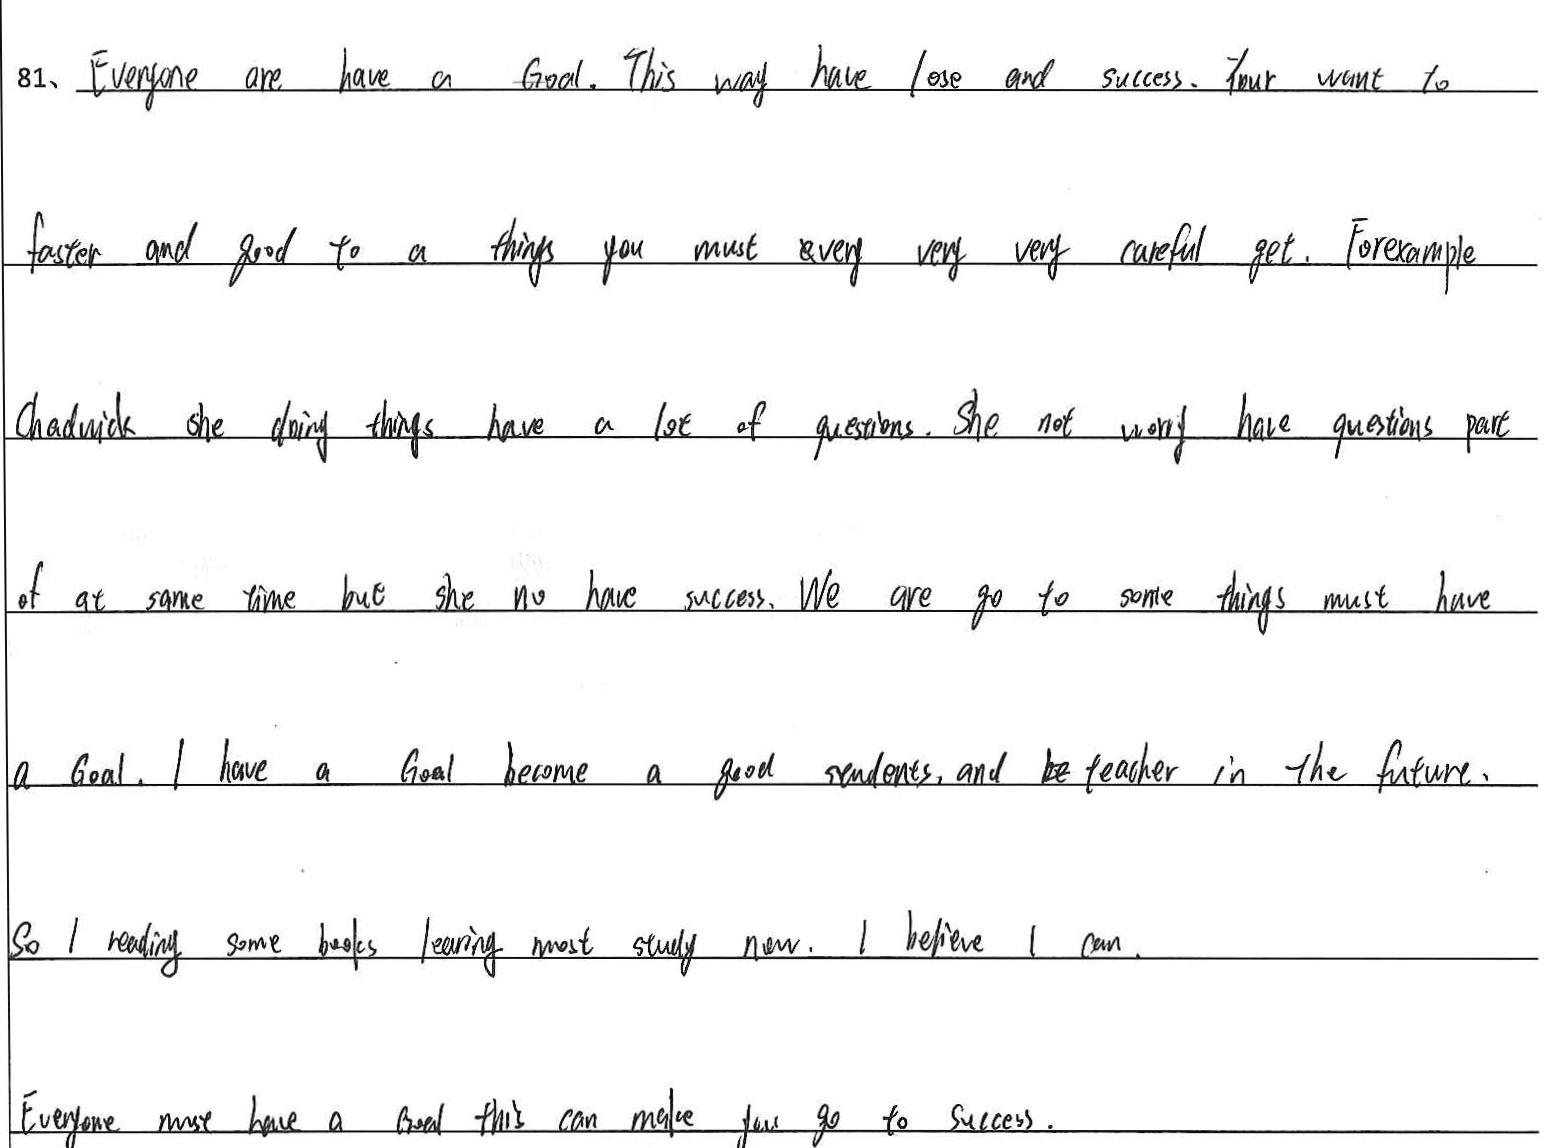 81、Everyone are have a Goal. This way have lose and success. Your want to
faster and good to a things you must every very very careful get. Forexample
Chadwick she doing things have a lot of questions. She not worry have questions part
of at same time but she no have success. We are go to some things must have
a Goal. I have a Goal become a good sendents, and be teacher in the future.
So I reading some books learing most study now. I believe I can.
Everyone must have a Goal this can make you go to success.